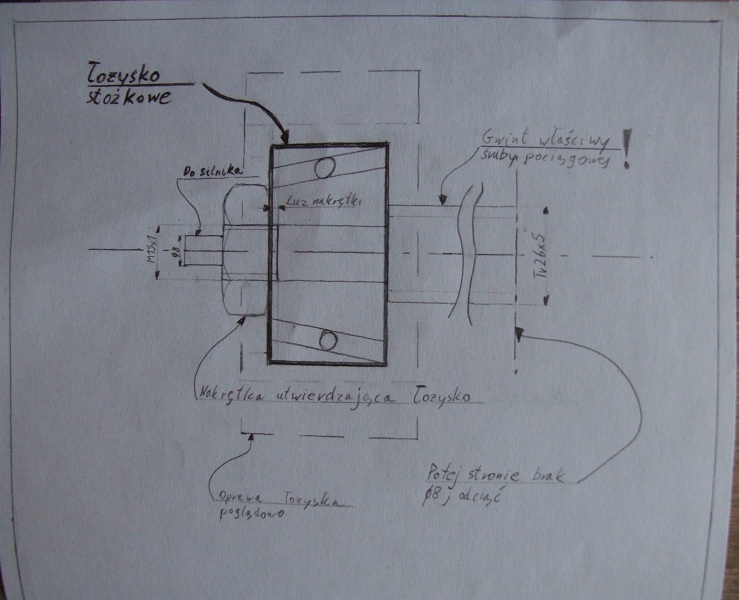 Łożysko
stożkowe
Gwint właściwy
śruby pociągowej !
Do silnika
Luz nakrętki
M15x1
ø8
Tr26x5
Nakrętka utwierdzająca Łożysko
Po tej stronie brak
ø8; odciąć
Oprawa Łożyska
poglądowo